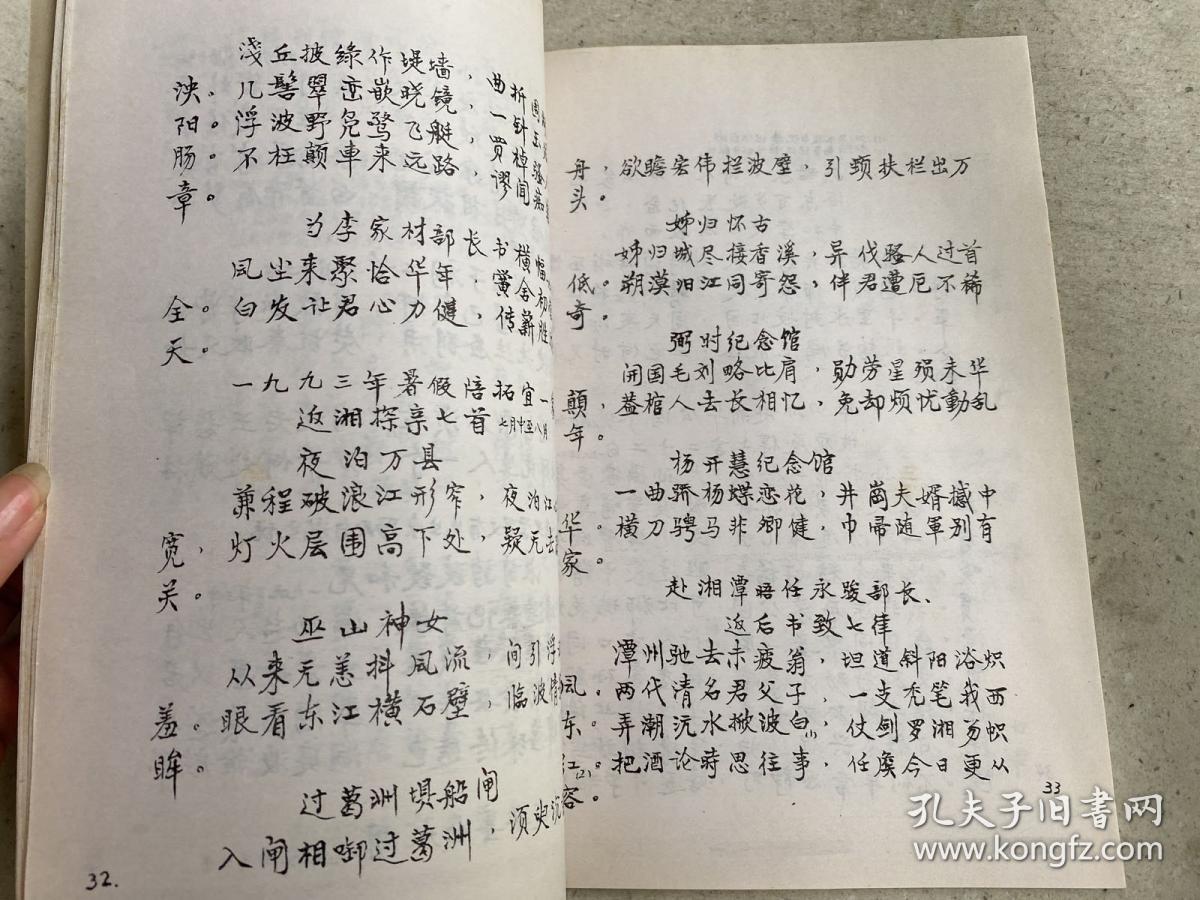 浅丘披绿作堤墙，曲折围
泱。几髻翠峦嵌晓镜，一
阳。浮波野凫鹭飞艇，
肠。不枉颠車来远路，
章。
为李家材部长书横幅
风尘来聚恰华年，黉舍初
全。白发让君心力健，传薪胜
天。
一九九三年暑假陪拓宜
返湘探亲七首 七月中至八月
夜泊万县
兼程破浪江形窄，夜泊江
宽，灯火层围高下处，疑无去
关。
巫山神女
从来无恙抖风流，间引浮
羞。眼看东江横石壁，临波情
眸。
过葛洲坝船闸
入闸相啣过葛洲，须臾沉
32.
舟，欲瞻宏伟拦波壁，引颈扶栏出万
头。
姊归怀古
姊归城尽接香溪，异代骚人过首
低。朔漠汨江同寄怨，伴君遭厄不稀
奇。
弼时纪念馆
开国毛刘略比肩，勋劳星殒未华
颠，盖棺人去长相忆，免却烦忧動乱
年。
杨开慧纪念馆
一曲骄杨蝶恋花，井崗夫婿撼中
华。横刀骋马非卿健，巾帼随軍别有
家。
赴湘潭晤任永骏部长、
返后书致七律
潭州驰去未疲翁，坦道斜阳浴炽
风。两代清名君父子，一支秃笔我西
东。弄潮沅水掀波白(1)，仗剑罗湘易帜
红(2)。把酒论時思往事，任虞今日更从
容。
33
孔夫子旧書网
www.kongfz.com